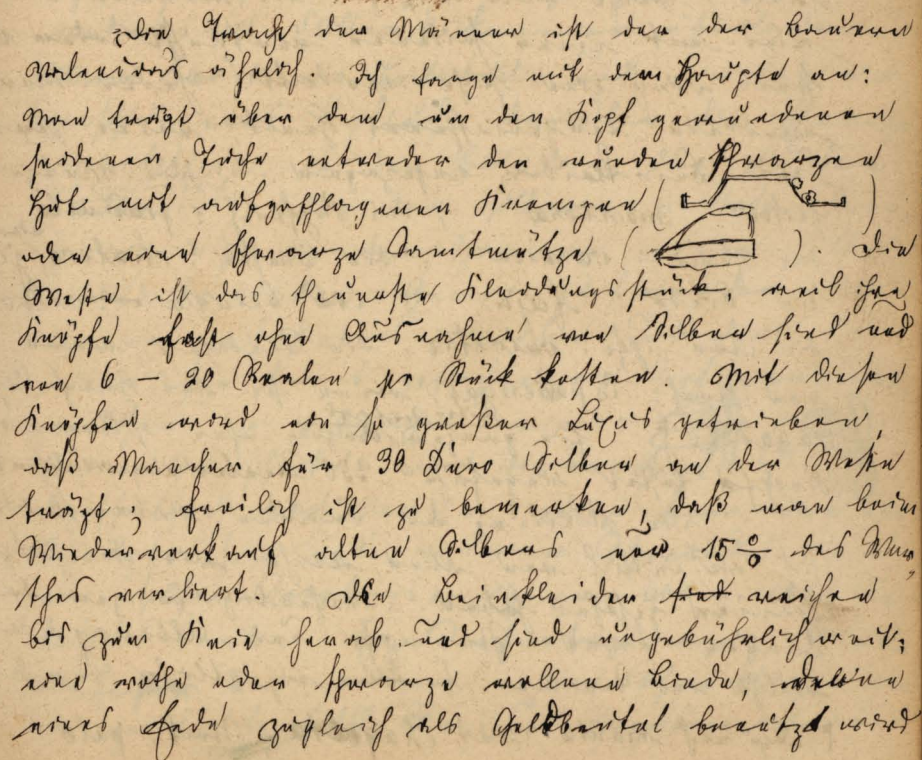 Die Tracht der Männer ist der der Bauern
Valencias ähnlich. Ich fange mit dem Haupte an:
Man trägt über dem um den Kopf gewundenen
seidenen Tuche entweder den runden schwarzen
Hut mit aufgeschlagenen Krempen ( )
oder eine schwarze Samtmütze ( ). Die
Weste ist das theuerste Kleidungsstück, weil ihre
Knöpfe fast ohne Ausnahme von Silber sind und
von 6 – 20 Realen pr Stück kosten. Mit diesen
Knöpfen wird ein so großer Luxus getrieben,
daß Mancher für 30 Duro Silber an der Weste
trägt; freilich ist zu bemerken, daß man beim
Wiederverkauf alten Silbers nur 15 % des Wer-
thes verliert. Die Beinkleider sind reichen
bis zum Knie herab und sind ungebührlich weit;
eine rothe oder schwarze wollene Binde,
eines Ende zugleich als Geldbeutel benutzt wird